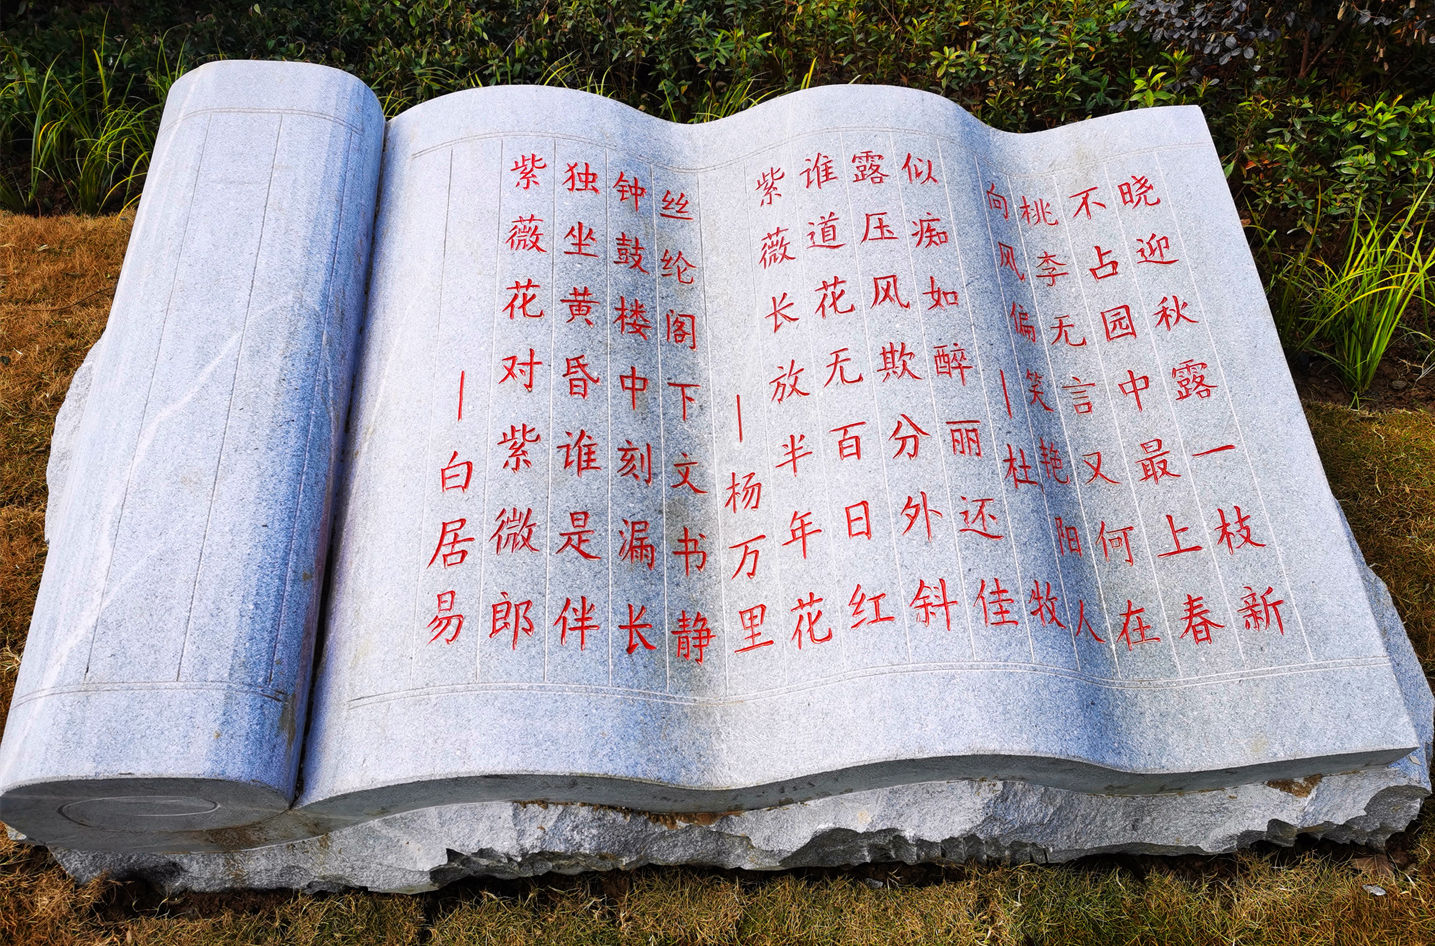 晓迎秋露一枝新
不占园中最上春
桃李无言又何在
向风偏笑艳阳人
—杜牧
似痴如醉丽还佳
露压风欺分外斜
谁道花无百日红
紫薇长放半年花
—杨万里
丝纶阁下文书静
钟鼓楼中刻漏长
独坐黄昏谁是伴
紫薇花对紫微郎
—白居易